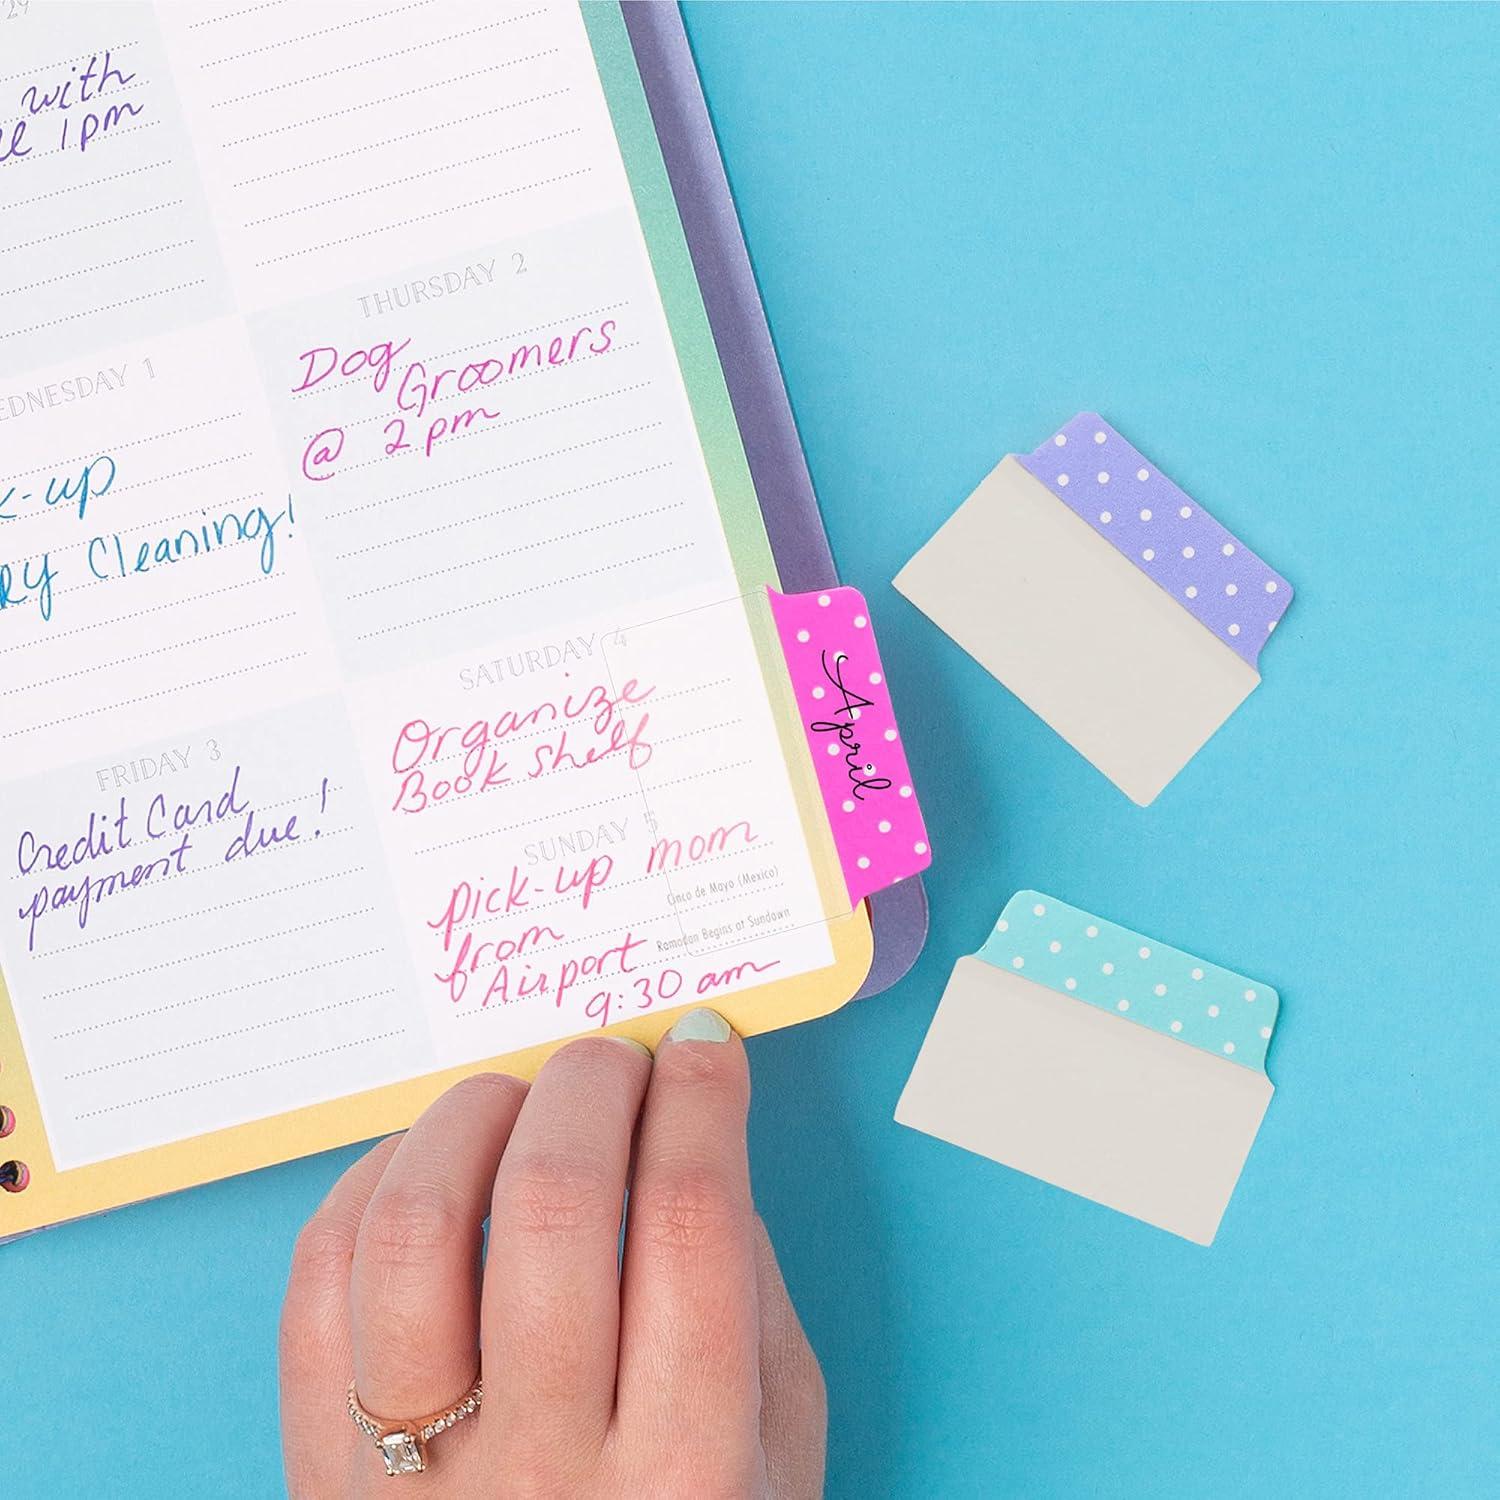 29
with
1pm
THURSDAY 2
Dog
Groomers
@ 2pm
WEDNESDAY 1
-up
Cleaning!
SATURDAY 4
Organize
Book shelf
FRIDAY 3
Credit Card
payment due!
SUNDAY 5
pick-up mom
from
Airport
9:30 am
Cinco de Mayo (Mexico)
Ramadan Begins at Sundown
April